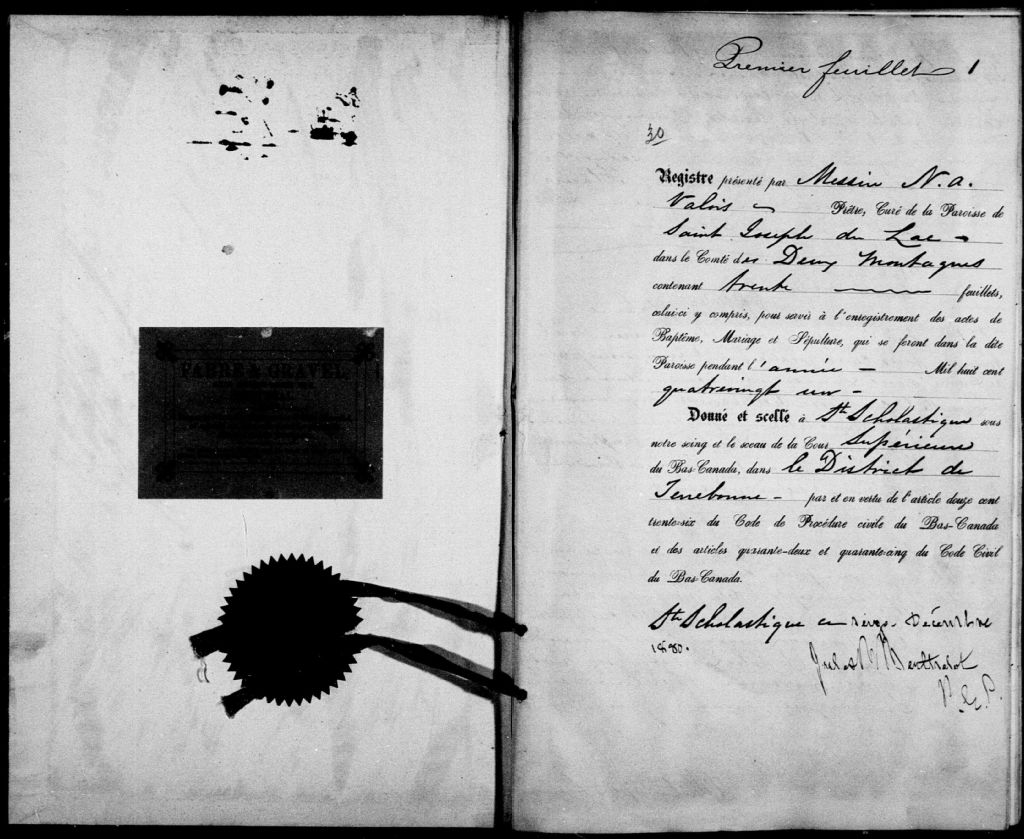 FABRE & GRAVEL
Premier feuillet 1
30
Registre présenté par Messire N. A.
Valois Prêtre, Curé de la Paroisse de
Saint Joseph du Lac
dans le Comté des Deux Montagnes
contenant trente feuillets,
celui-ci y compris, pour servir à l'enregistrement des actes de
Baptême, Mariage et Sépulture, qui se feront dans la dite
Paroisse pendant l'année Mil huit cent
quatrevingt un
Donné et scellé à Ste Scholastique sous
notre seing et le sceau de la Cour Supérieure
du Bas-Canada, dans le District de
Terrebonne par et en vertu de l'article douze cent
trente-six du Code de Procédure civile du Bas-Canada
et des articles quarante-deux et quarante-cinq du Code Civil
du Bas-Canada.
Ste Scholastique ce Décembre
1880.
Jules R Berthelot
P.C.S.